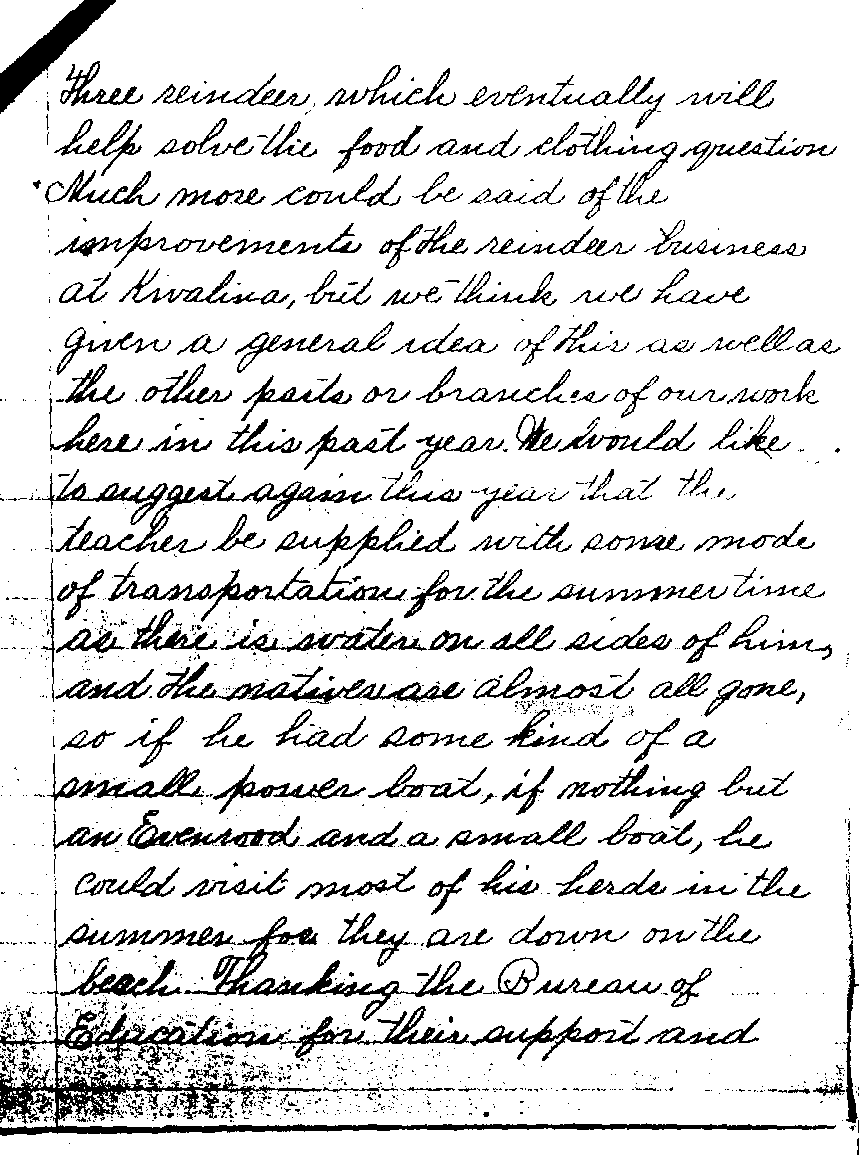 three reindeer, which eventually will
help solve the food and clothing question
Much more could be said of the
improvements of the reindeer business
at Kivalina, but we think we have
given a general idea of this as well as
the other parts or branches of our work
here in this past year. We would like
to suggest again this year that the
teacher be supplied with some mode
of transportation for the summer time
as there is water on all sides of him,
and the natives are almost all gone,
so if he had some kind of a
small power boat, if nothing but
an Evenrood and a small boat, he
could visit most of his herds in the
summer for they are down on the
beach. Thanking the Bureau of
Education for their support and